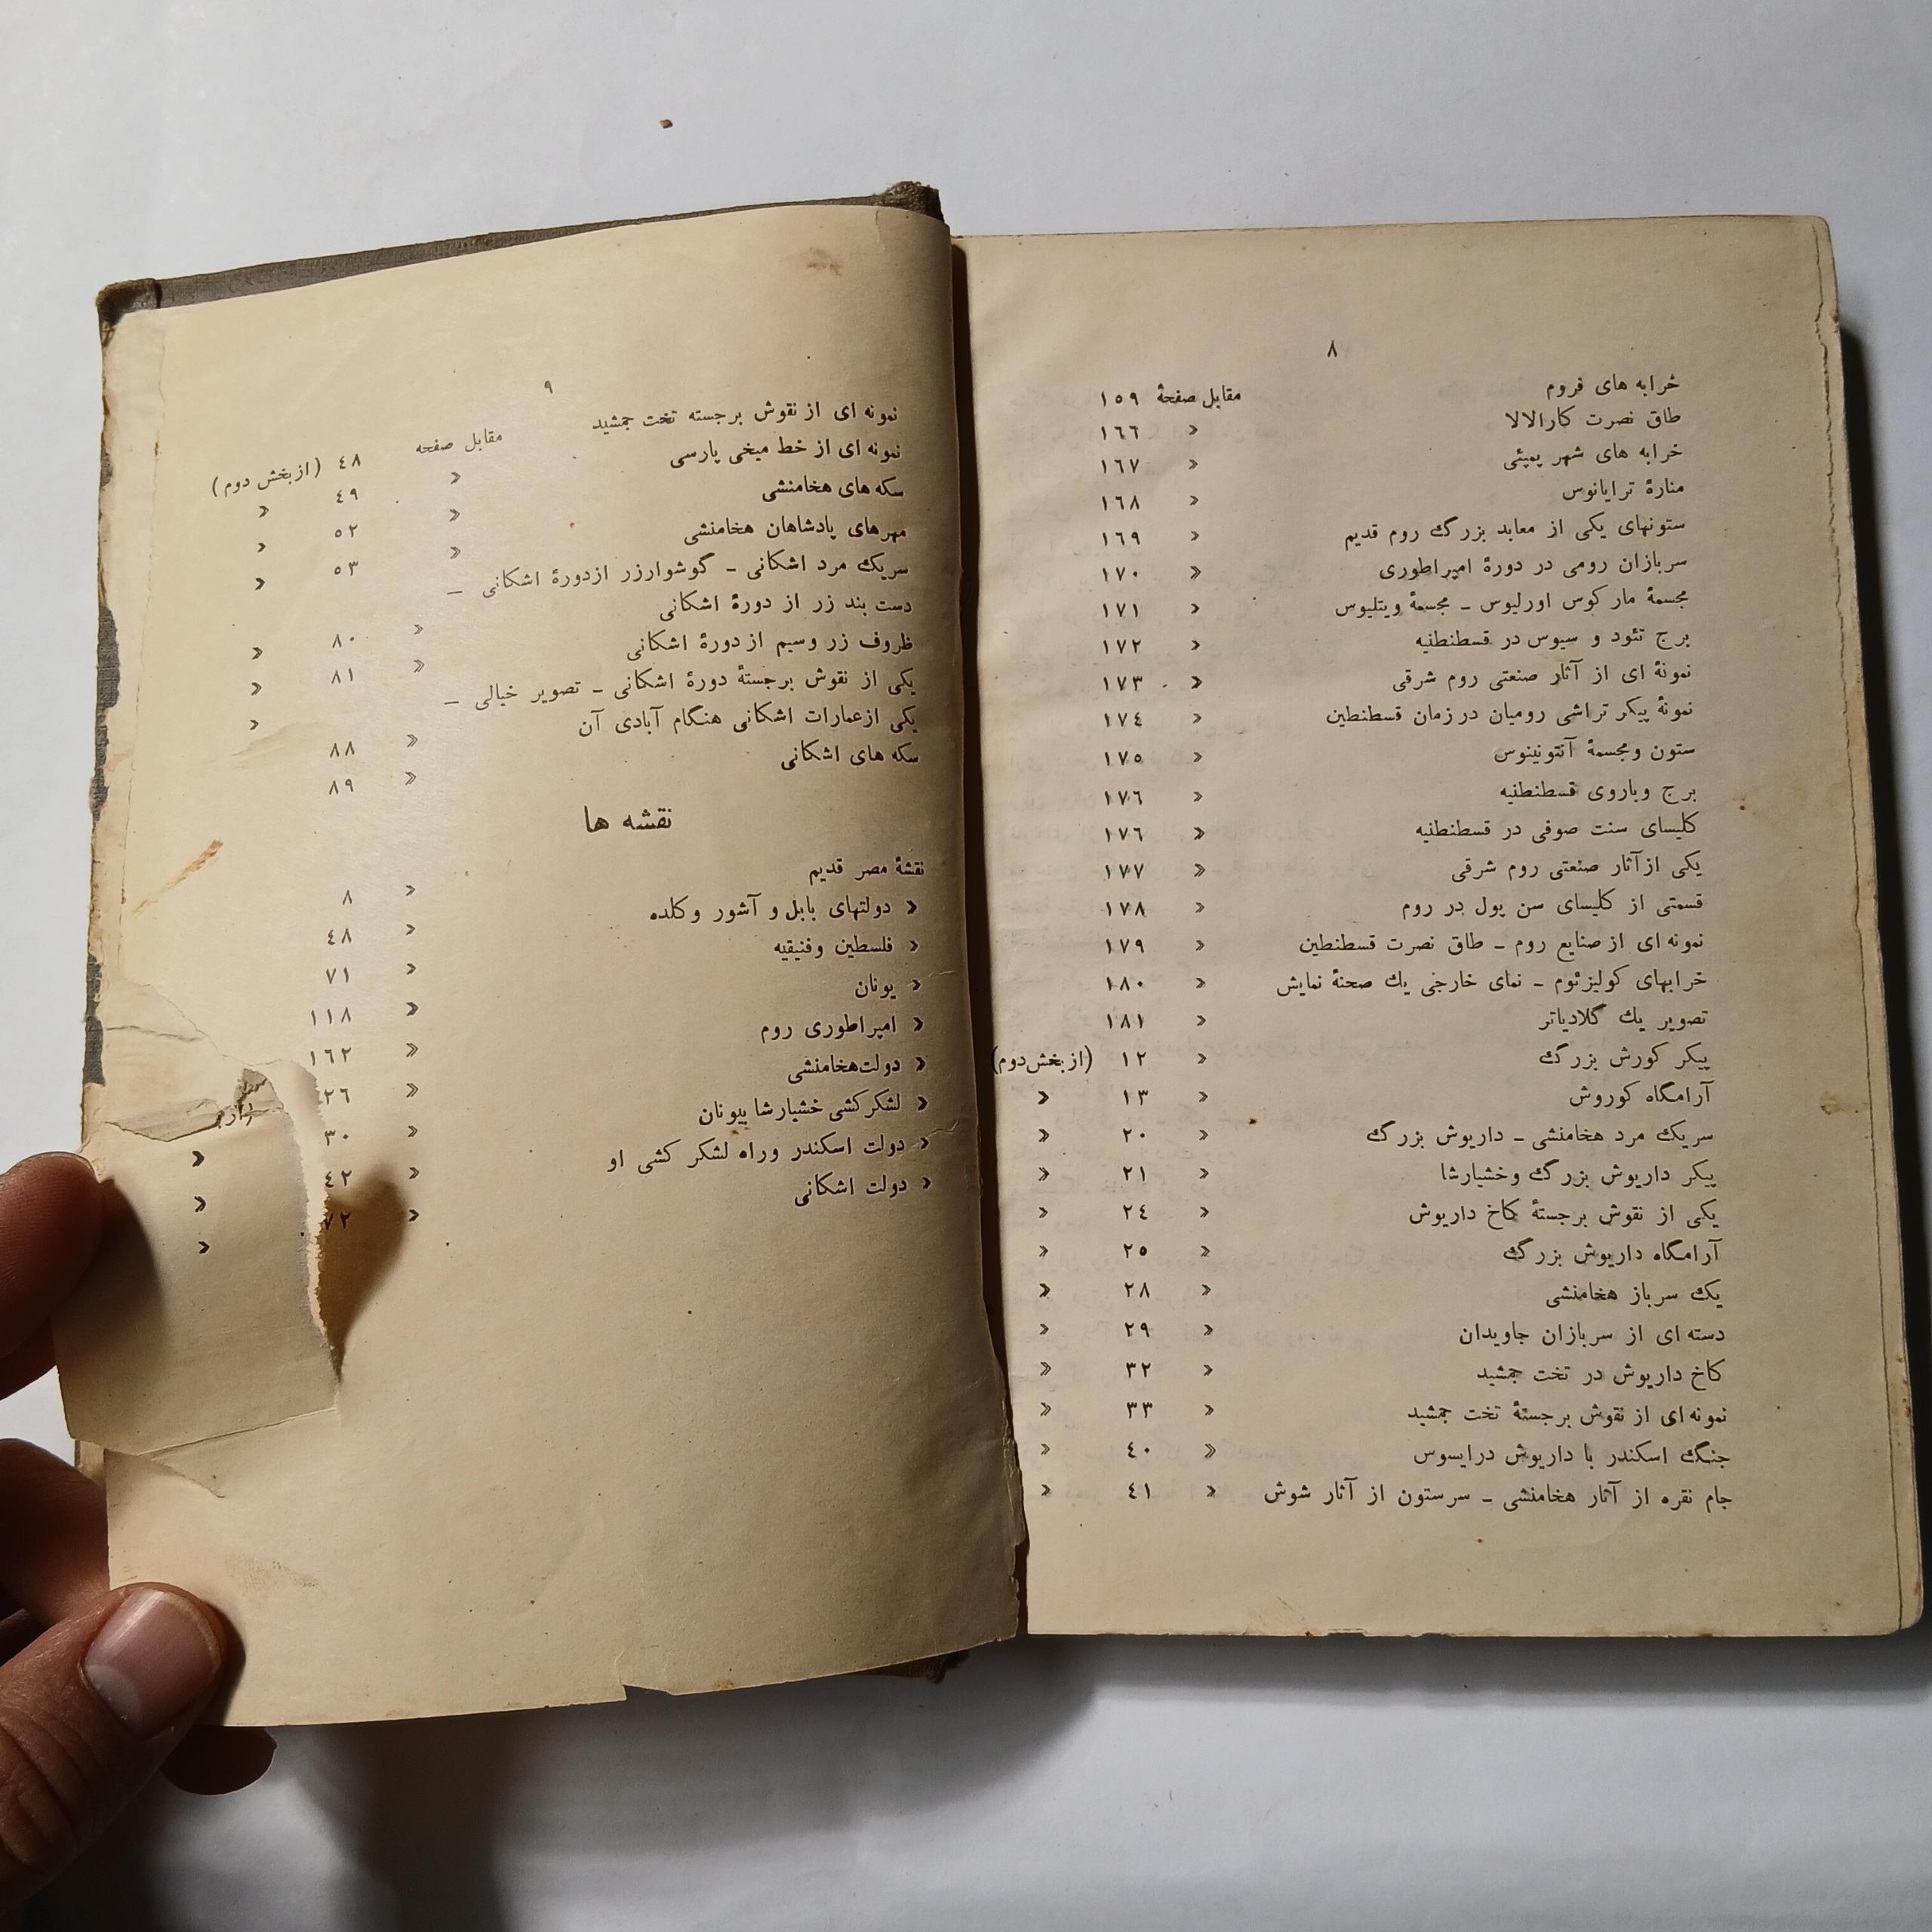 ٨
خرابه های فروم مقابل صفحهٔ ١٥٩
طاق نصرت کارالالا » ١٦٦
خرابه های شهر پمپئی » ١٦٧
منارهٔ ترایانوس » ١٦٨
ستونهای یکی از معابد بزرگ روم قدیم » ١٦٩
سربازان رومی در دورهٔ امپراطوری » ١٧٠
مجسمهٔ مارکوس اورلیوس ـ مجسمهٔ ویتلیوس » ١٧١
برج تئود و سیوس در قسطنطنیه » ١٧٢
نمونهٔ ای از آثار صنعتی روم شرقی » ١٧٣
نمونهٔ پیکر تراشی رومیان در زمان قسطنطین » ١٧٤
ستون و مجسمهٔ آنتونینوس » ١٧٥
برج و باروی قسطنطنیه » ١٧٦
کلیسای سنت صوفی در قسطنطنیه » ١٧٦
یکی از آثار صنعتی روم شرقی » ١٧٧
قسمتی از کلیسای سن پول در روم » ١٧٨
نمونه ای از صنایع روم ـ طاق نصرت قسطنطین » ١٧٩
خرابهای کولیزئوم ـ نمای خارجی یك صحنهٔ نمایش » ١٨٠
تصویر یك گلادیاتر » ١٨١
پیکر کورش بزرگ » ١٢ (از بخش دوم)
آرامگاه کوروش » ١٣ »
سریك مرد هخامنشی ـ داریوش بزرگ » ٢٠ »
پیکر داریوش بزرگ و خشیارشا » ٢١ »
یکی از نقوش برجستهٔ کاخ داریوش » ٢٤ »
آرامگاه داریوش بزرگ » ٢٥ »
یك سرباز هخامنشی » ٢٨ »
دسته ای از سربازان جاویدان » ٢٩ »
کاخ داریوش در تخت جمشید » ٣٢ »
نمونه ای از نقوش برجستهٔ تخت جمشید » ٣٣ »
جنگ اسکندر با داریوش در ایسوس » ٤٠ »
جام نقره از آثار هخامنشی ـ سرستون از آثار شوش » ٤١ »
٩
نمونه ای از نقوش برجسته تخت جمشید مقابل صفحه ٤٨ (از بخش دوم)
نمونه ای از خط میخی پارسی » ٤٩ »
سکه های هخامنشی » ٥٢ »
مهرهای پادشاهان هخامنشی » ٥٣ »
سریك مرد اشکانی ـ گوشوارزر از دورهٔ اشکانی ـ
دست بند زر از دورهٔ اشکانی » ٨٠ »
ظروف زر و سیم از دورهٔ اشکانی » ٨١ »
یکی از نقوش برجستهٔ دورهٔ اشکانی ـ تصویر خیالی ـ
یکی از عمارات اشکانی هنگام آبادی آن » ٨٨ »
سکه های اشکانی » ٨٩
نقشه ها
نقشهٔ مصر قدیم » ٨
» دولتهای بابل و آشور و کلده » ٤٨
» فلسطین و فنیقیه » ٧١
» یونان » ١١٨
» امپراطوری روم » ١٦٢
» دولت هخامنشی » ٢٦
» لشکرکشی خشیارشا بیونان » ٣٠ »
» دولت اسکندر و راه لشکر کشی او » ٤٢ »
» دولت اشکانی » ٧٢ »